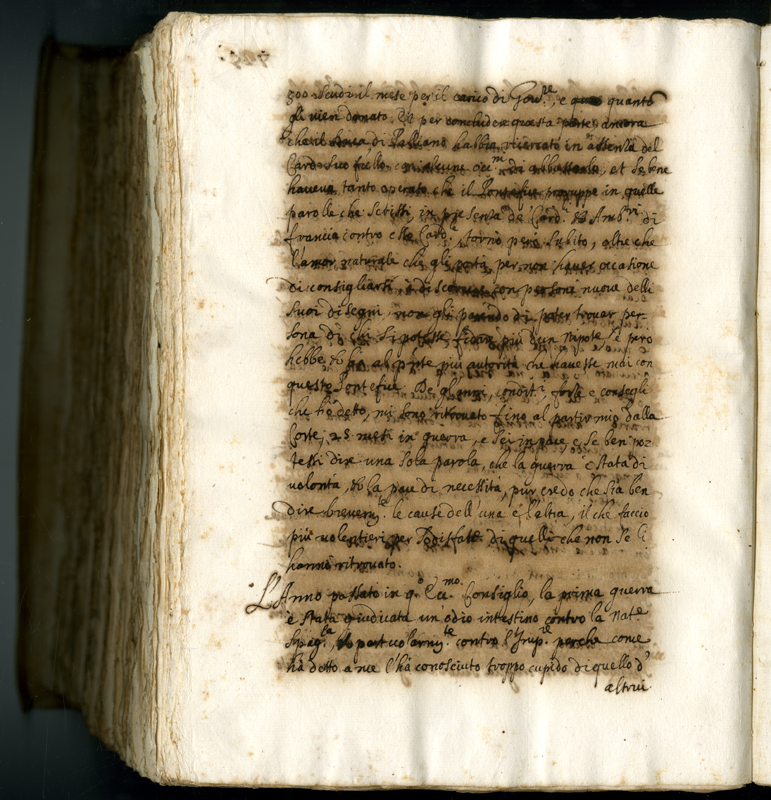 500 scudi il mese per il carico di Gov.re, e quanto
gli vien donato, Et per concludere questa parte, ancora
che il Duca di Palliano habbia ricercato in assenza del
Card. suo fratello di abbassarlo, et se bene
haveva tanto operato che il Pontefice in quelle
parolle che scrissi, in presenza de Card.i & Amb.ri di
francia contro esso Card.le, tornò però subito, oltre che
l'amor naturale che gli porta, per non haver occasione
di consigliarsi, ò di scorrere con persone nuove delli
suoi disegni non gli parendo di poter trovar per-
sona di chi si potesse fidar più d'un Nipote, e però
hebbe, & hà al pnte più autorità che havesse mai con
questo Pontefice. De gl'anni, condit.i, forze e consegli
che hò detto, mi sono ritrovato fino al partir mio dalla
Corte, 28 mesi in guerra, e sei in pace, e se ben po=
tessi dire una sola parola, che la guerra è stata di
volontà, & la pace di necessità, pur credo che sia ben
dire brevem.te le cause dell'una e l'altra, il che faccio
più volentieri per sodisfatt.e di quelli che non se li
hanno ritrovato.
L'Anno passato in q.o Ecc.mo Consiglio, la prima guerra
è stata giudicata un'odio intestino contro la Nat.e
Spag.la, & particolarm.te contro l'Imp.re perche come
hà detto a me l'hà conosciuto troppo cupido di quello d'
altrui